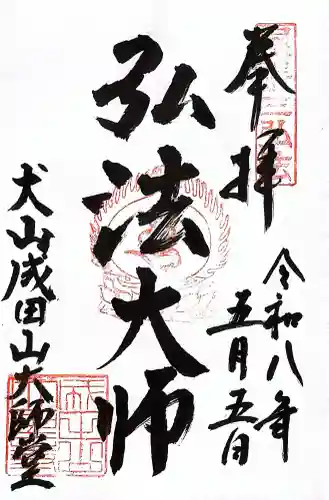 奉拝
令和八年
五月五日
弘法大師
犬山成田山大師堂